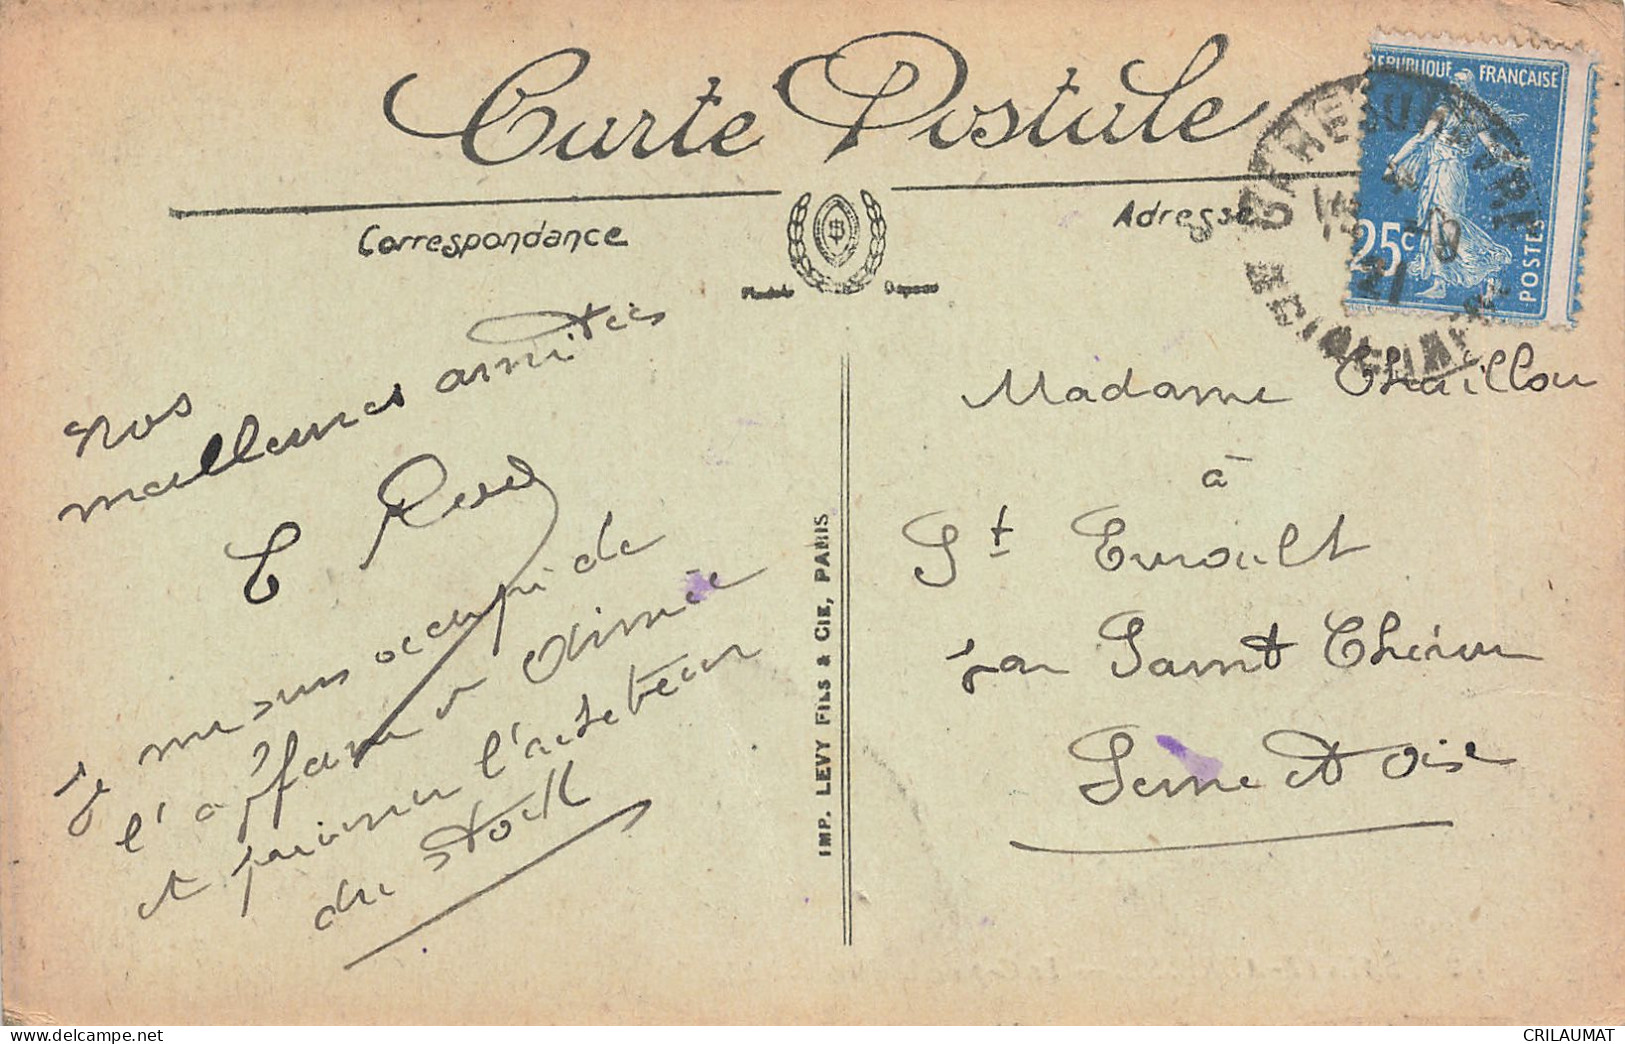 Carte Postale
Correspondance
Adresse
REPUBLIQUE FRANÇAISE
25c
POSTES
Nos
meilleures amitiés
Je me suis occupé de
l'affaire Aimée
et l'acheteur
du stock
IMP. LEVY FILS & CIE, PARIS
Madame Chaillou
à
St Evroult
par Saint Chéron
Seine et Oise
www.delcampe.net
CRILAUMAT